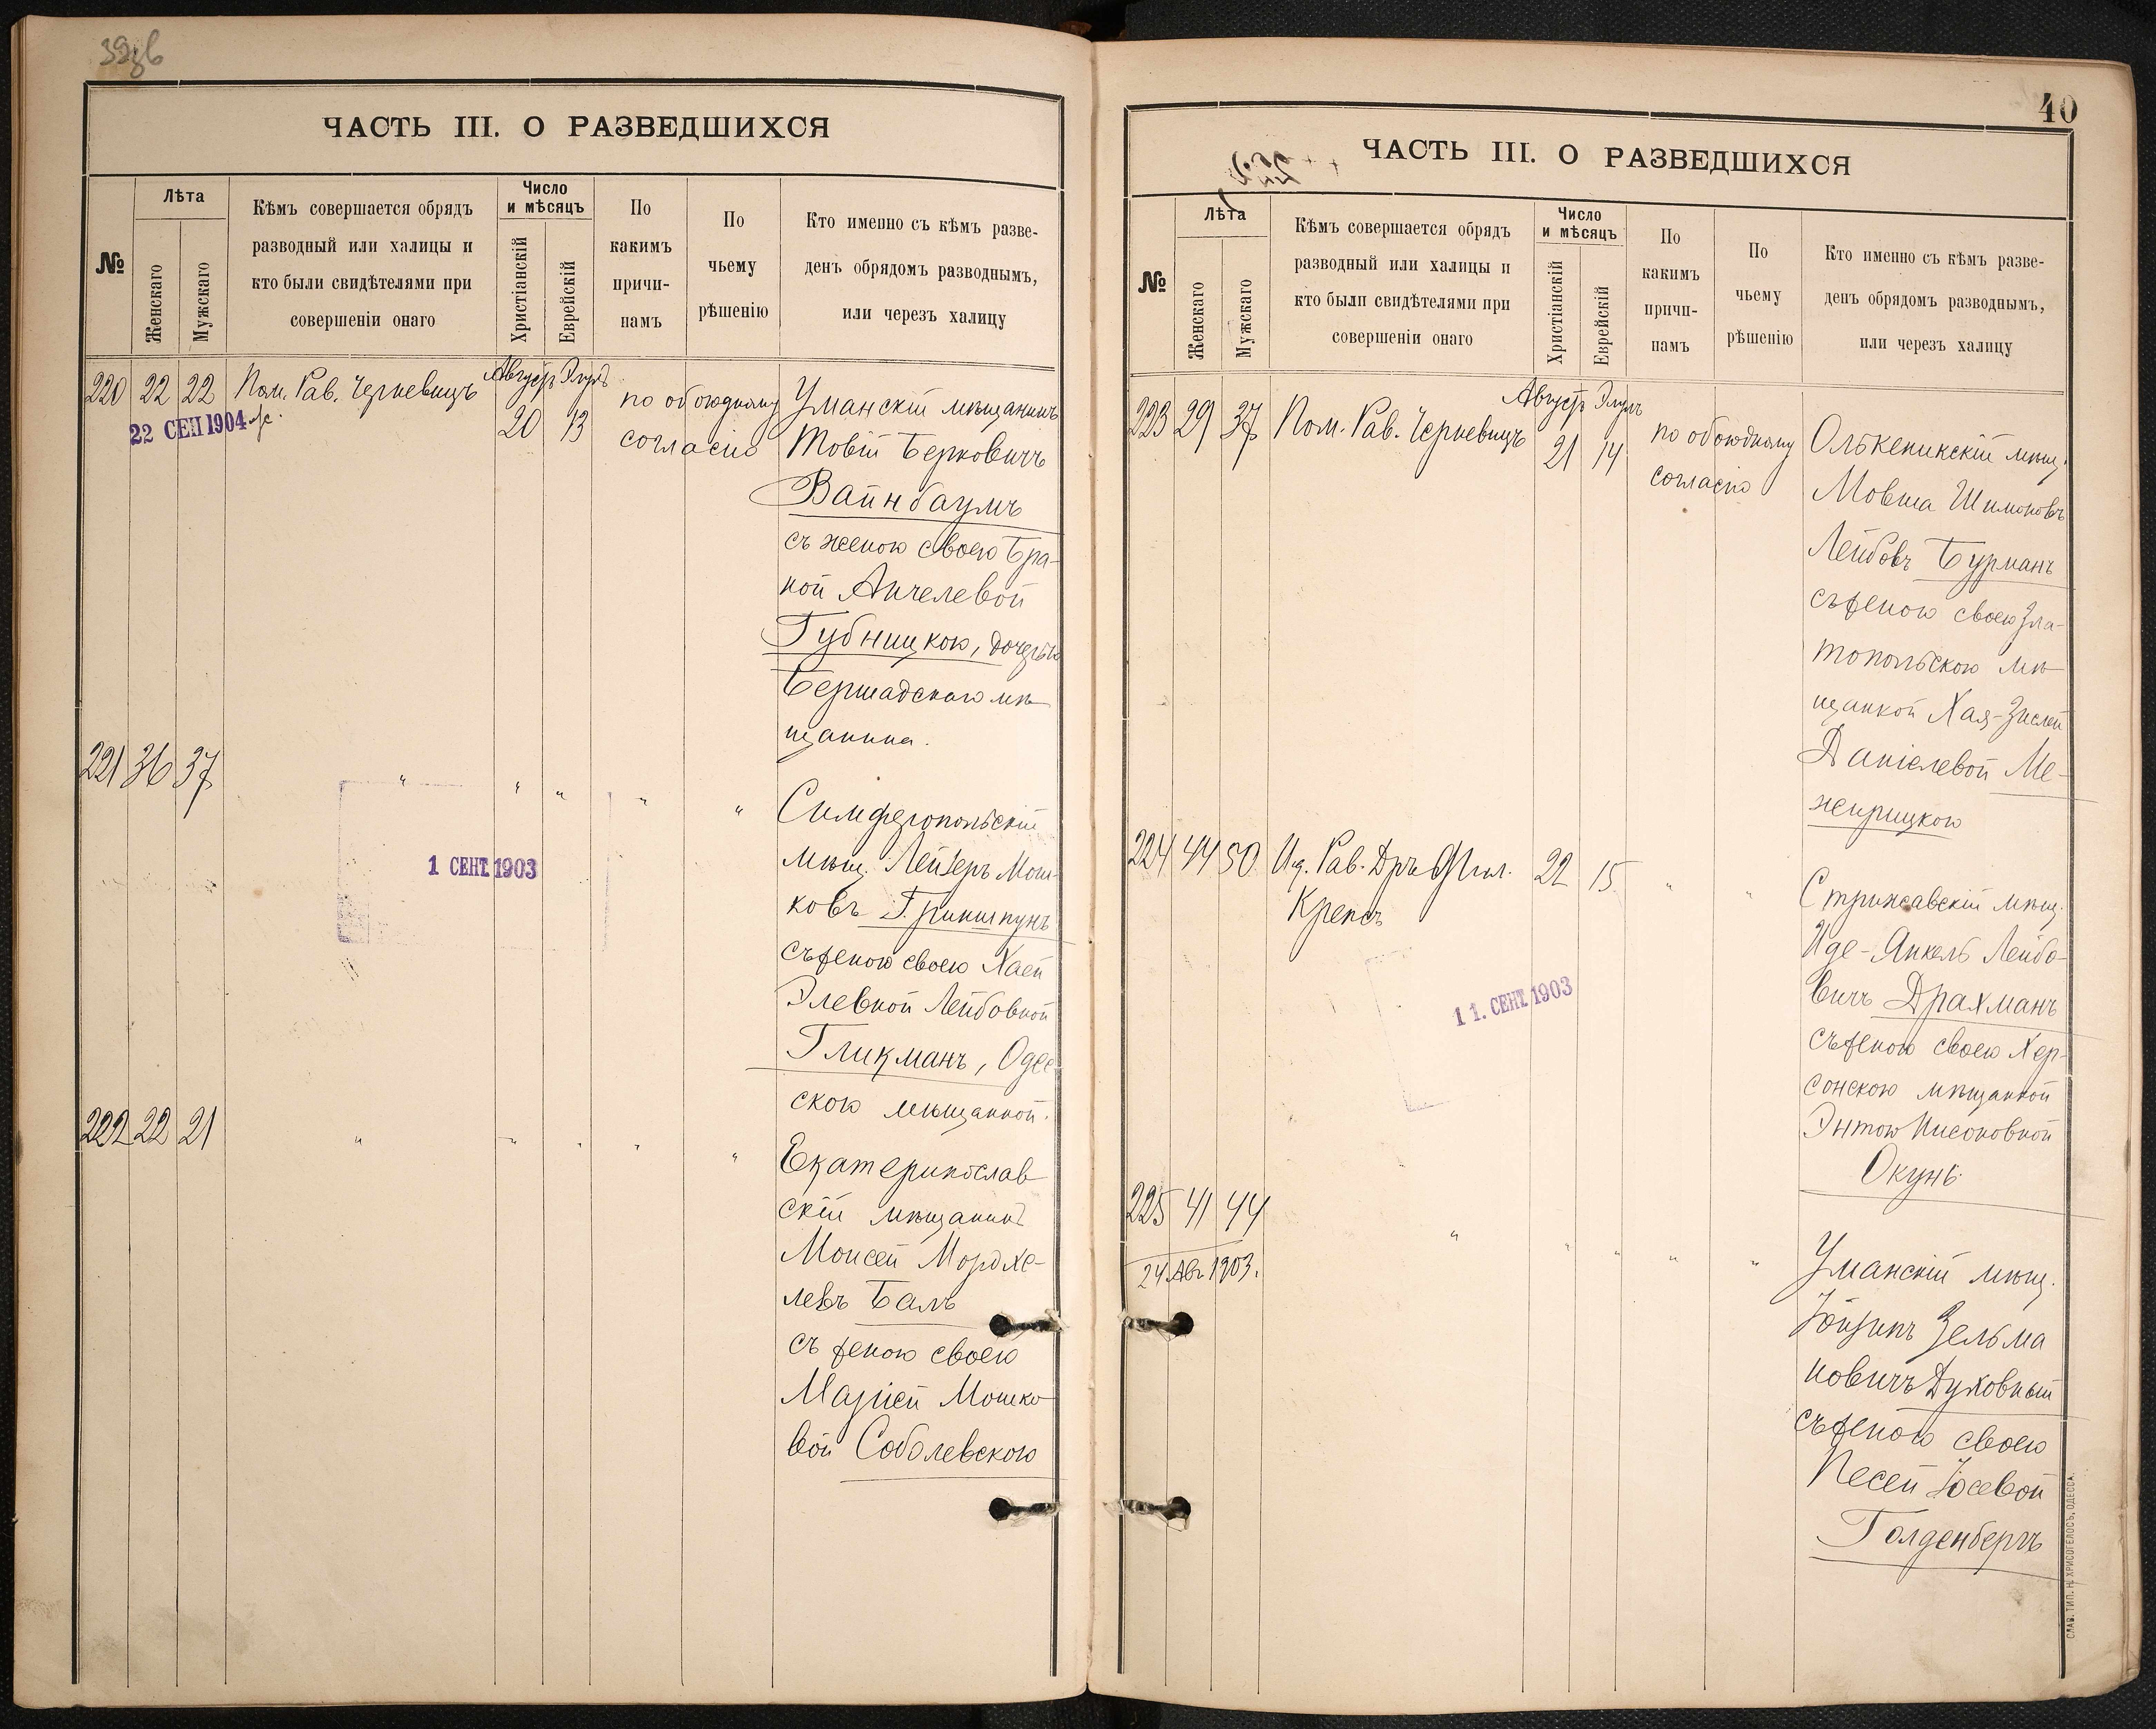 39зв
ЧАСТЬ III. О РАЗВЕДШИХСЯ
№
Лѣта
Женскаго
Мужскаго
Кѣмъ совершается обрядъ
разводный или халицы и
кто были свидѣтелями при
совершеніи онаго
Число
и мѣсяцъ
Христіанскій
Еврейскій
По
какимъ
причи-
памъ
По
чьему
рѣшенію
Кто именно съ кѣмъ разве-
денъ обрядомъ разводнымъ,
или черезъ халицу
220 22 22 Пом. Рав. Черкевицъ
Августъ Элулъ
20 13
по обоюдному
согласію
22 СЕП 1904
Уманскій мѣщанинъ
Товій Берковичъ
Вайнбаумъ
съ женою своею Бра-
ной Анчелевой
Губницкою, дочерью
Бершадскаго мѣ-
щанина.
221 36 37 " " " " "
1 СЕНТ. 1903
Симферопольскій
мѣщ. Лейзеръ Мош-
ковъ Гринипунъ
съ женою своею Хаей
Элевной Лейбовной
Гликманъ, Одес
скою мѣщанкой.
222 22 21 " " " " "
Екатеринослав
скій мѣщанинъ
Моисей Мордхе-
левъ Балъ
съ женою своею
Маріей Мошко
вой Соболевскою
40
ЧАСТЬ III. О РАЗВЕДШИХСЯ
№
Лѣта
Женскаго
Мужскаго
Кѣмъ совершается обрядъ
разводный или халицы и
кто были свидѣтелями при
совершеніи онаго
Число
и мѣсяцъ
Христіанскій
Еврейскій
По
какимъ
причи-
памъ
По
чьему
рѣшенію
Кто именно съ кѣмъ разве-
денъ обрядомъ разводнымъ,
или черезъ халицу
223 29 37 Пом. Рав. Черкевицъ
Августъ Элулъ
21 14
по обоюдному
согласію
Олькеникскій мѣщ.
Мовша Шимоновъ
Лейбовъ Бурманъ
съ женою своею Зла-
топольскою мѣ-
щанкой Хая-Зислей
Даніелевой Ме-
жирицкою
224 44 50 И.д. Рав. Дръ Фил.
Крепсъ
22 15 " "
11. СЕНТ. 1903
Стрижавскій мѣщ.
Иде-Янкель Лейбо-
вичъ Драхманъ
съ женою своею Хер-
сонскою мѣщанкой
Энтою Нисоновной
Окунь.
225 41 44 " " " " "
24 Авг 1903.
Уманскій мѣщ.
Зельма
новичъ Духовный
съ женою своею
Песей Іосевой
Голденбергъ
СЛАВ. ТИП. Н. ХРИСОГЕЛОСЪ, ОДЕССА.